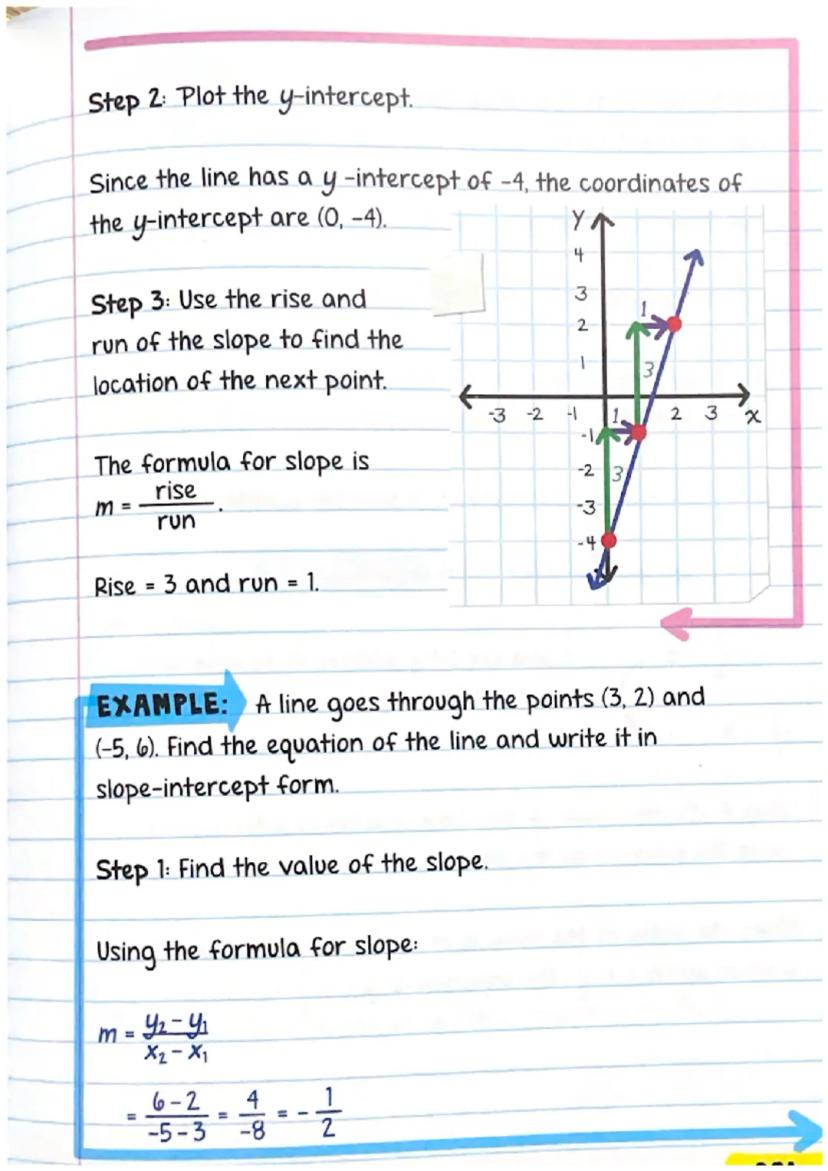 Step 2: Plot the y-intercept.
Since the line has a y-intercept of -4, the coordinates of
the y-intercept are (0, -4).
Step 3: Use the rise and
run of the slope to find the
location of the next point.
The formula for slope is
m = rise/run.
Rise = 3 and run = 1.
y
4
3
2
1
-3 -2 -1 2 3 x
-1
-2
-3
-4
1
3
1
3
EXAMPLE: A line goes through the points (3, 2) and
(-5, 6). Find the equation of the line and write it in
slope-intercept form.
Step 1: Find the value of the slope.
Using the formula for slope:
m = y₂ - y₁ / x₂ - x₁
= 6 - 2 / -5 - 3 = 4 / -8 = - 1 / 2